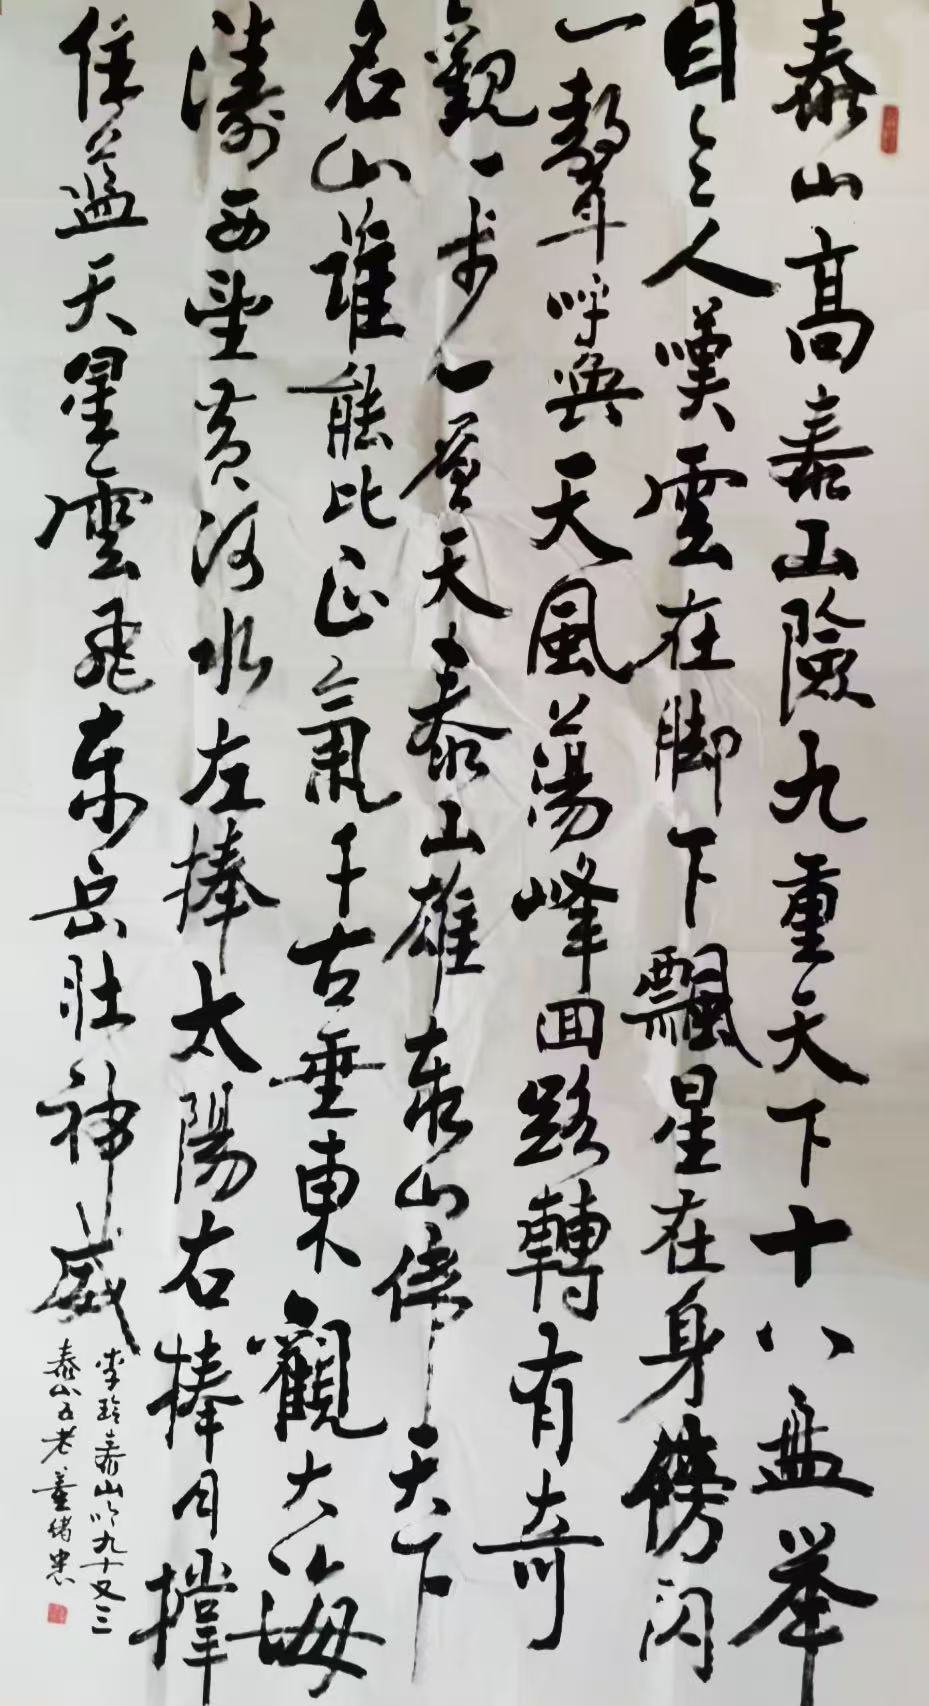 泰山高泰山險九重天下十八盘举
目令人嘆雲在脚下飄星在身傍闪
一聲呼喚天風蕩峰回路轉有奇
觀一步一層天泰山雄泰山偉天下
名山誰能比正氣千古垂東觀大海
濤西望黄河水左捧太陽右捧月撑
住蓝天星雲飛东岳壮神威
李玲泰山吟九十又三
泰山五老董绪忠